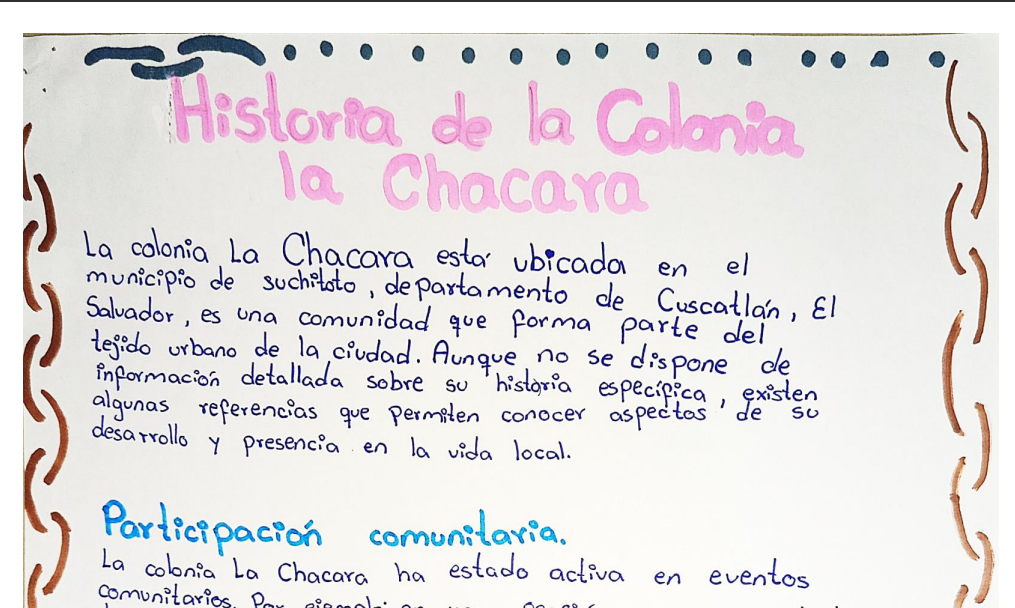 Historia de la Colonia
la Chacara
La colonia La Chacara está ubicada en el
municipio de suchitoto, departamento de Cuscatlán, El
Salvador, es una comunidad que forma parte del
tejido urbano de la ciudad. Aunque no se dispone de
información detallada sobre su historia específica, existen
algunas referencias que permiten conocer aspectos de su
desarrollo y presencia en la vida local.
Participación comunitaria.
La colonia La Chacara ha estado activa en eventos
comunitarios. Por